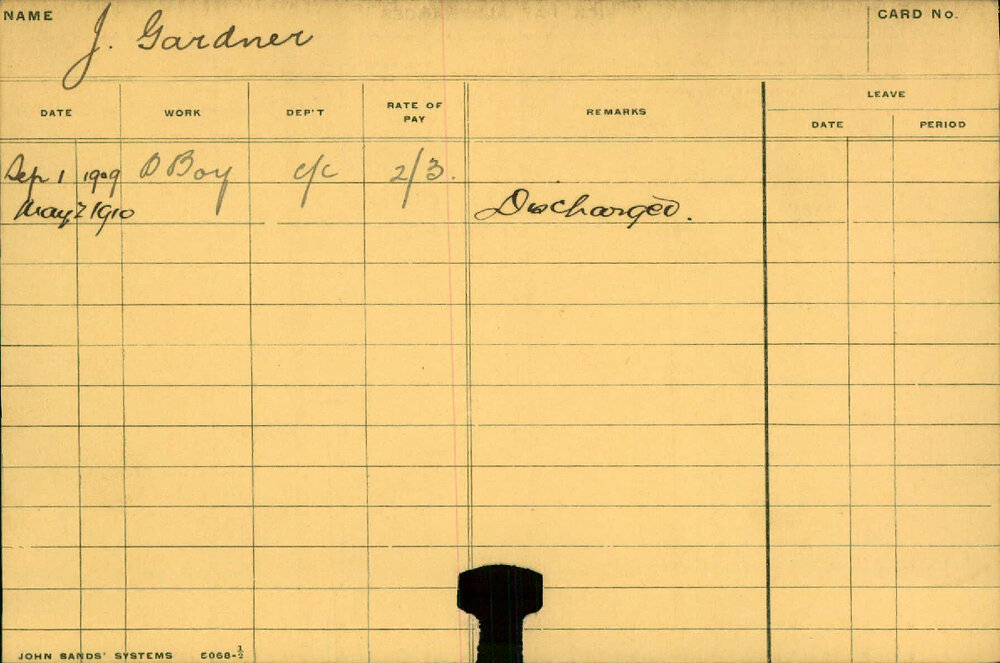 NAME J. Gardner CARD No.
DATE WORK DEP'T RATE OF PAY REMARKS LEAVE
DATE PERIOD
Sep 1 1909 O Boy c/c 2/3.
May 7 1910 Discharged.
JOHN SANDS' SYSTEMS 5068-½